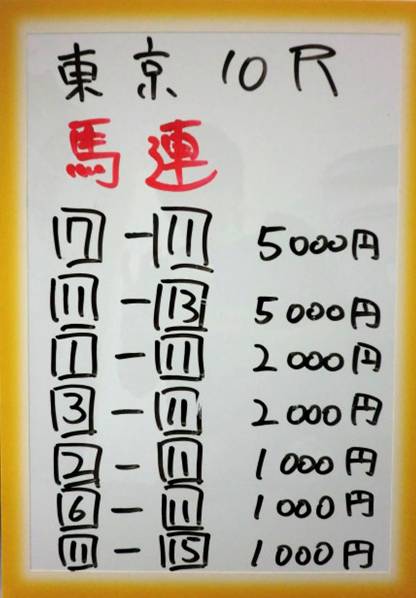 東京 10R
馬連
7-11 5000円
11-13 5000円
1-11 2000円
3-11 2000円
2-11 1000円
6-11 1000円
11-15 1000円